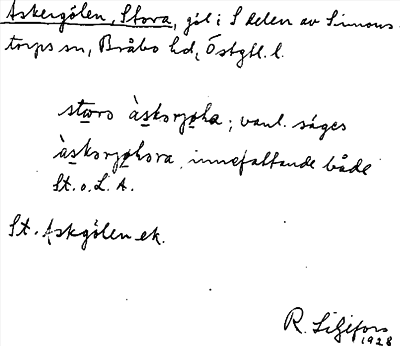 Askergölen, Stora, göl i S delen av Simons-
torps sn, Bråbo hd, Östgtl. l.
stωro àskorjøla; vanl. säges
àskorjølωra, innefattande både
St. o. L. A.
St. Askgölen ek.
R. Liljefors
1928